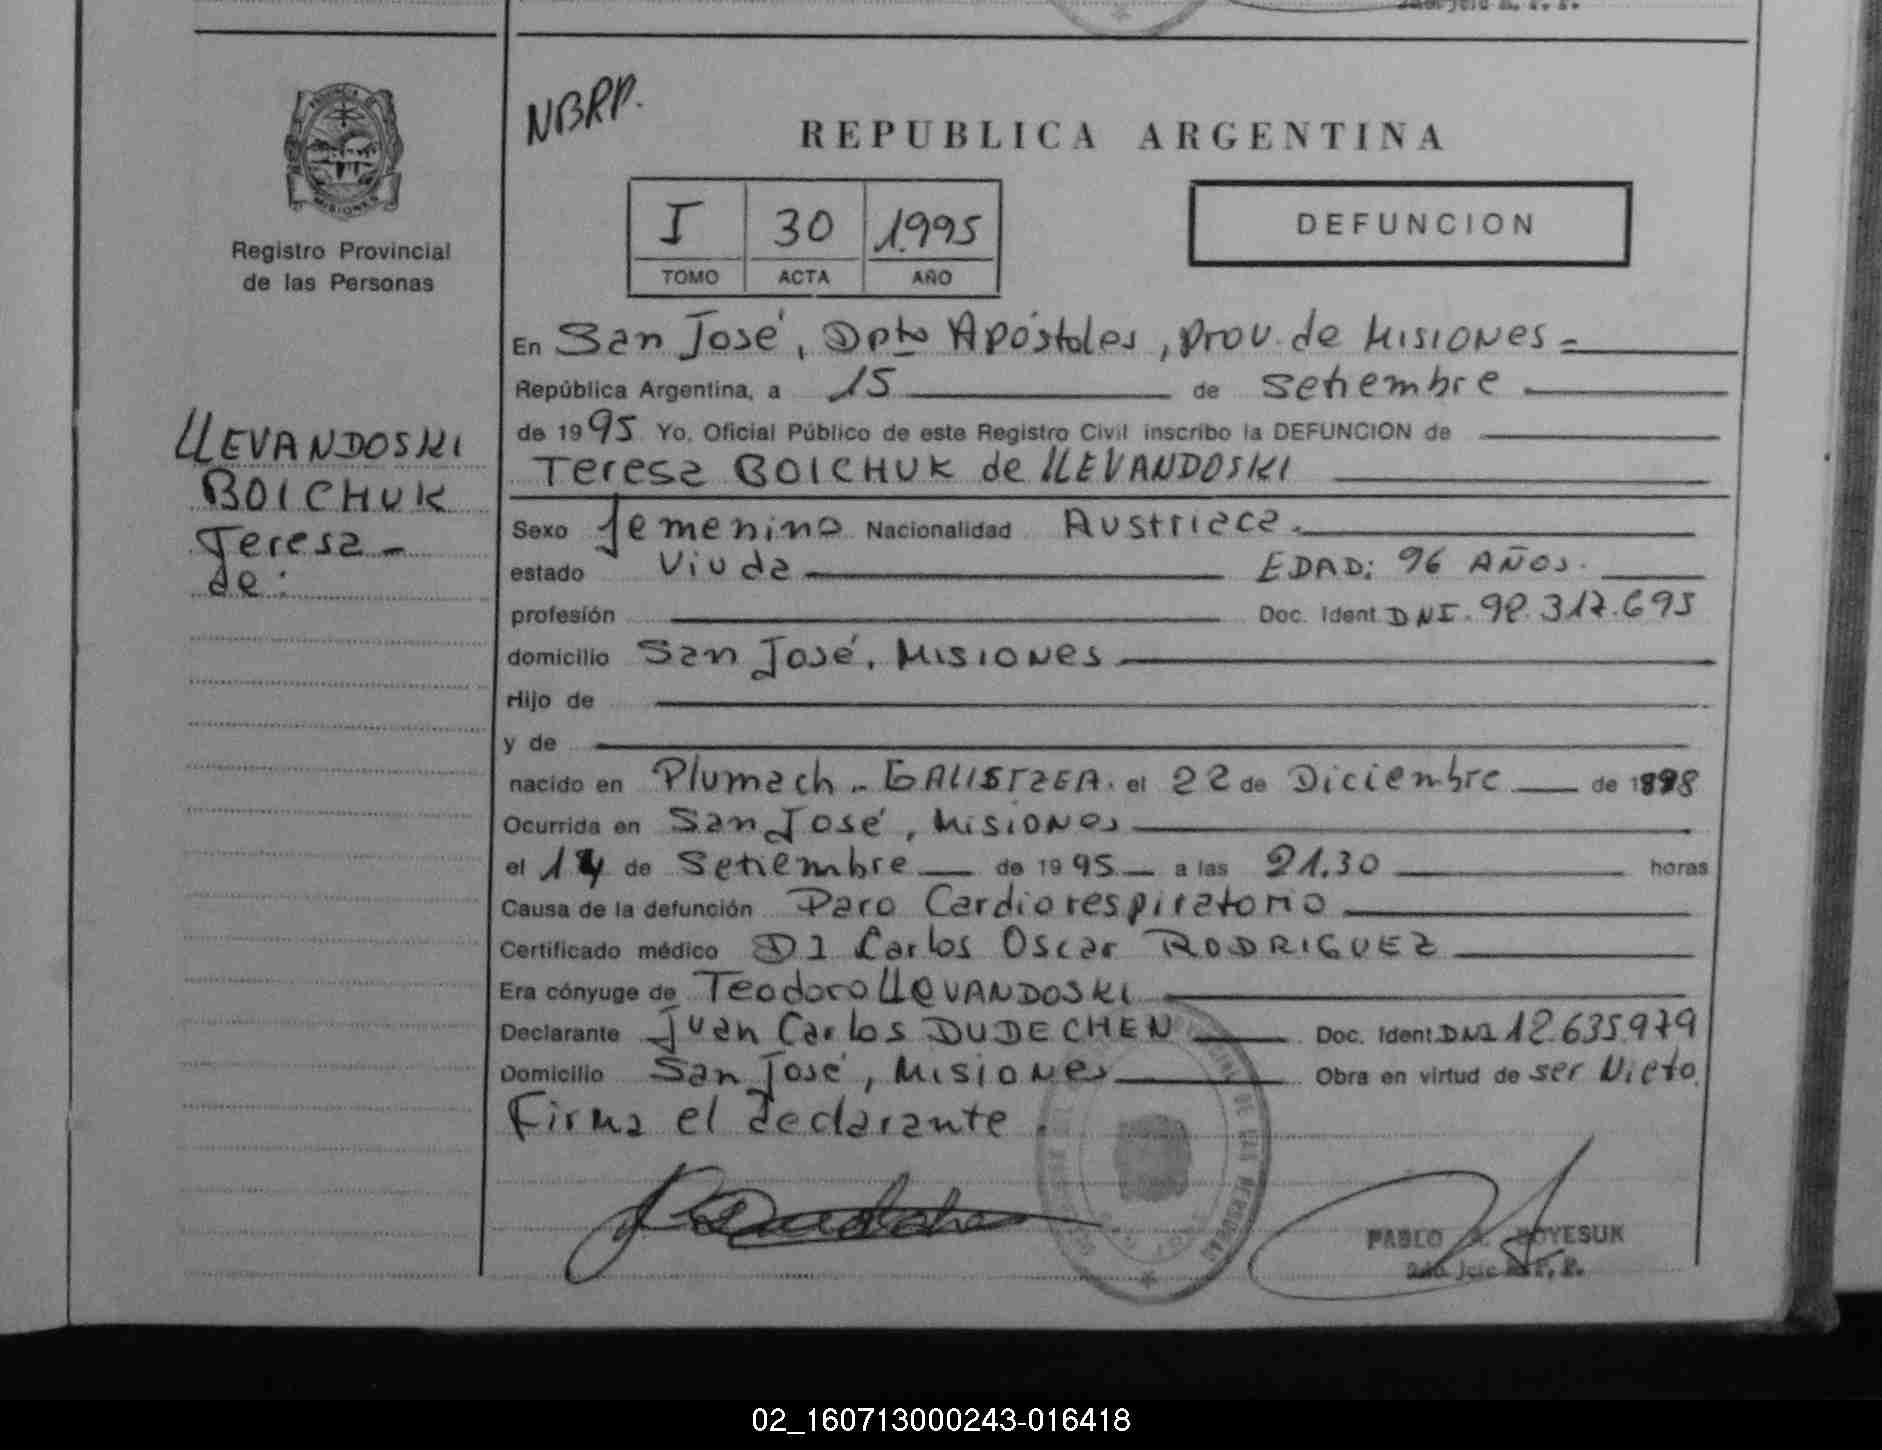 NBRP.
REPUBLICA ARGENTINA
PROVINCIA DE
MISIONES
Registro Provincial
de las Personas
I 30 1995
TOMO ACTA AÑO
DEFUNCION
En San José, Dpto Apóstoles, prov. de Misiones =
República Argentina, a 15 de Setiembre
de 1995 Yo, Oficial Público de este Registro Civil inscribo la DEFUNCION de
Teresa BOICHUK de LLEVANDOSKI
LLEVANDOSKI
BOICHUK
Teresa -
de:
Sexo femenino Nacionalidad Austriaca.
estado Viuda EDAD: 96 AÑOS.
profesión Doc. Ident DNI. 92.317.695
domicilio San José, Misiones
Hijo de
y de
nacido en Plumach - GALISTZEA. el 22 de Diciembre de 1898
Ocurrida en San José, Misiones
el 14 de Setiembre de 1995 a las 21.30 horas
Causa de la defunción Paro Cardiorespiratorio
Certificado médico Carlos Oscar RODRIGUEZ
Era cónyuge de Teodoro LLEVANDOSKI
Declarante Juan Carlos DUDECHEN Doc. Ident DNI 12.635.979
Domicilio San José, Misiones Obra en virtud de ser Nieto.
Firma el declarante.
DE LAS PERSONAS
PABLO BOYESUK
02_160713000243-016418